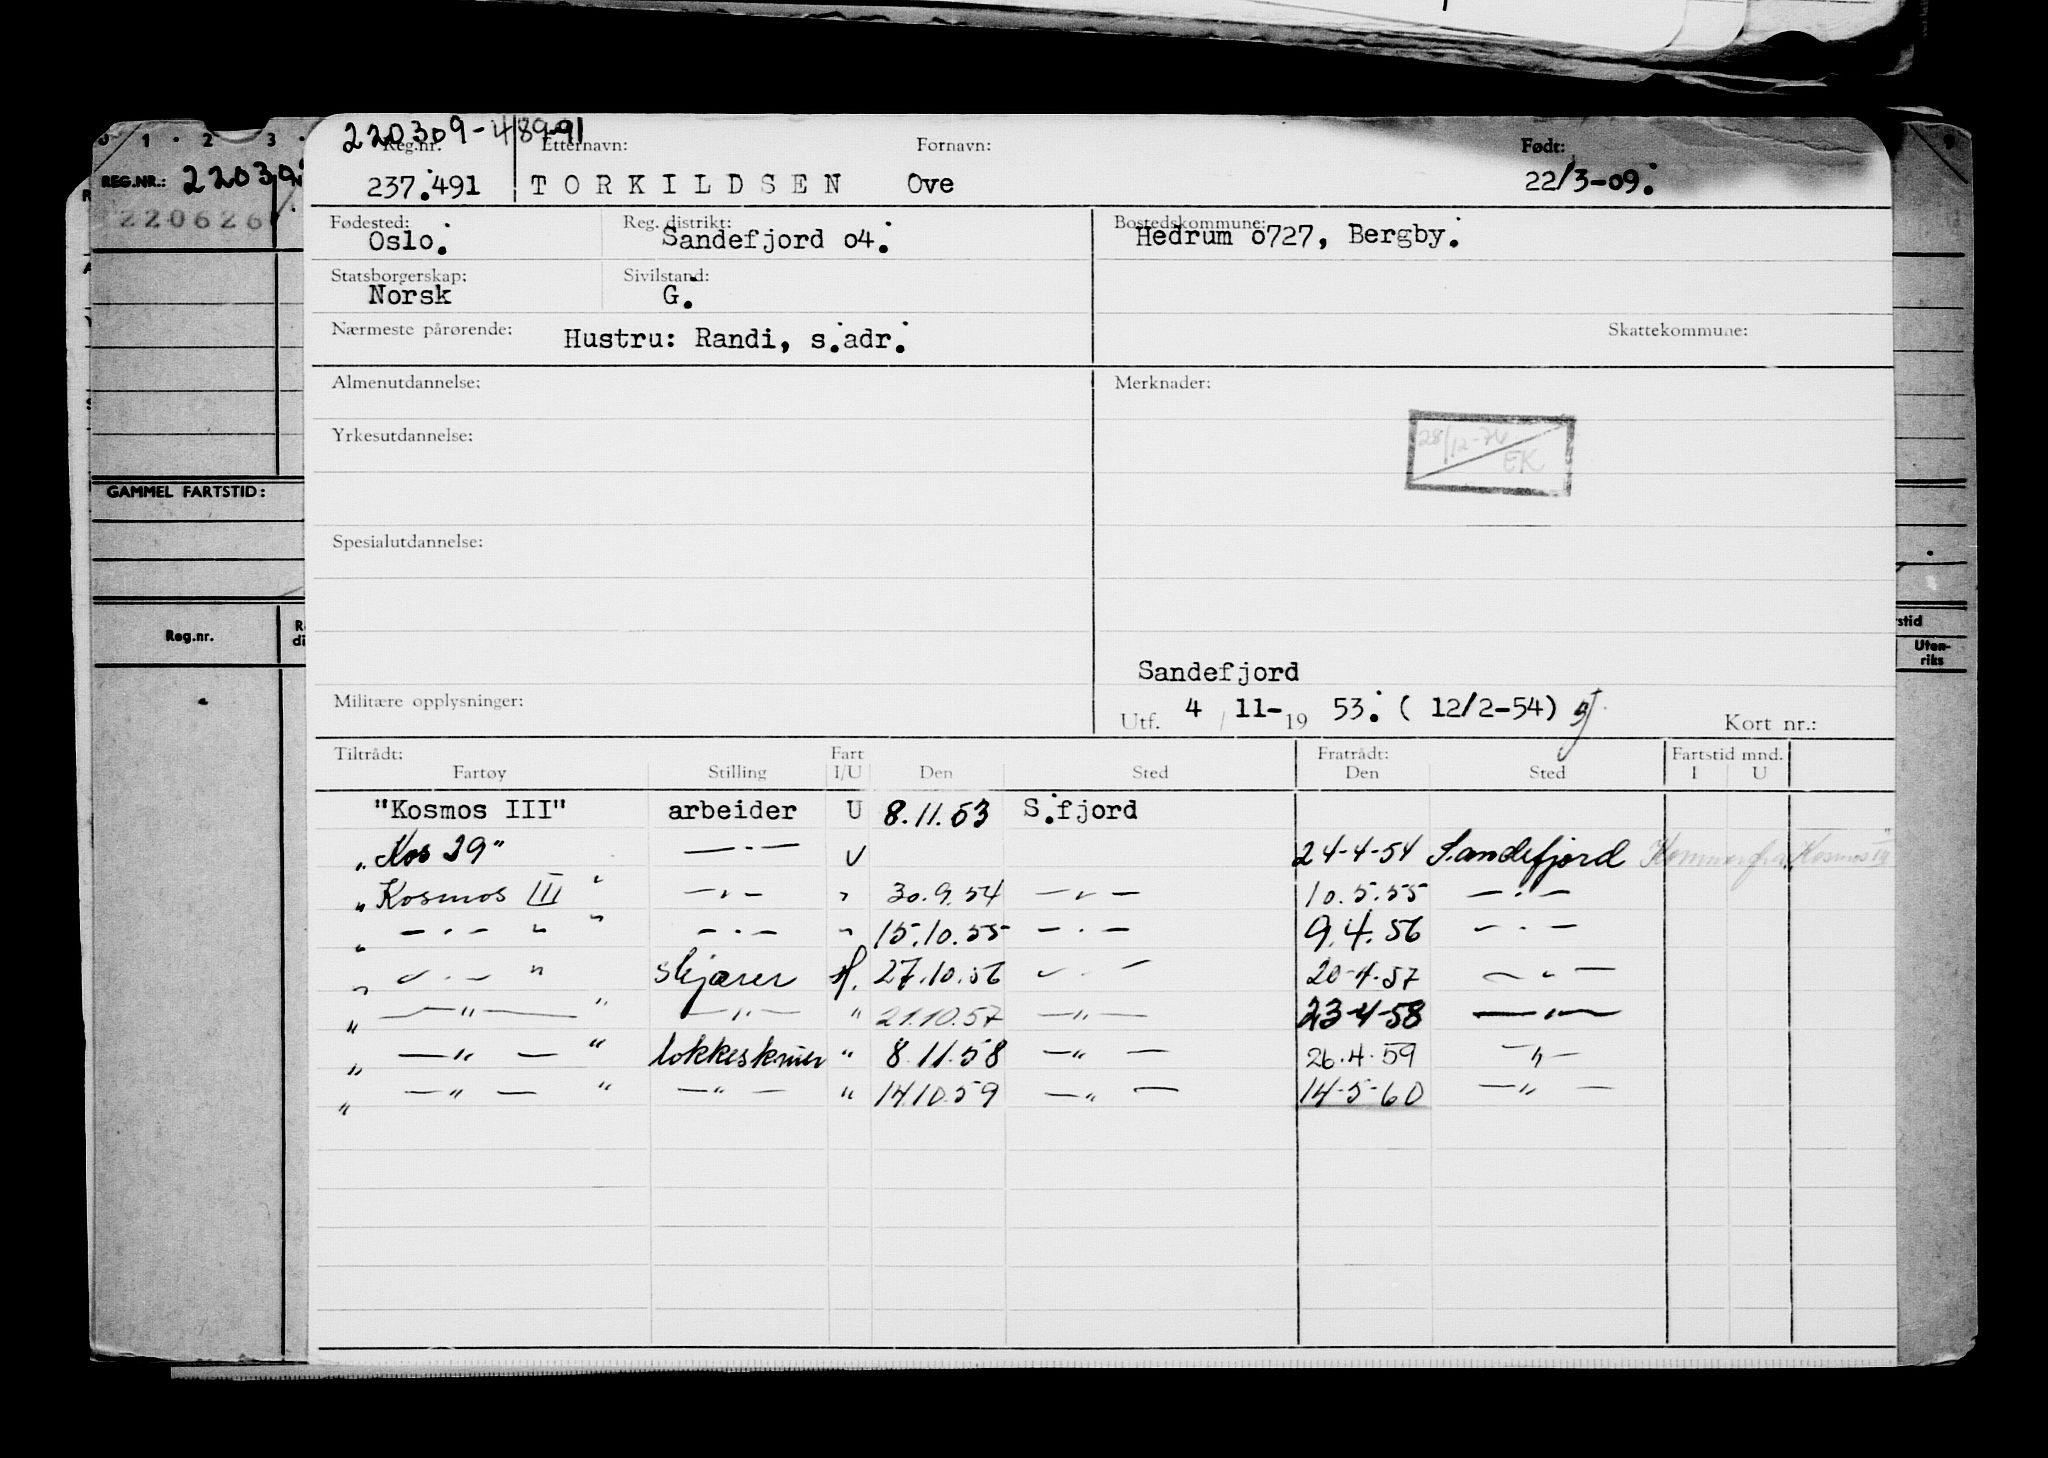 220309-48991
Reg.nr. Etternavn: Fornavn: Født:
237.491 TORKILDSEN Ove 22/3-09.
Fødested: Reg. distrikt: Bostedskommune:
Oslo. Sandefjord o4. Hedrum o727, Bergby.
Statsborgerskap: Sivilstand:
Norsk G.
Nærmeste pårørende: Hustru: Randi, s.adr. Skattekommune:
Almenutdannelse: Merknader:
28/12-76 EK
Yrkesutdannelse:
Spesialutdannelse:
Sandefjord
Militære opplysninger: Utf. 4 / 11- 19 53. ( 12/2-54) Kort nr.:
Tiltrådt: Fart Fratrådt: Fartstid mnd.
Fartøy Stilling I/U Den Sted Den Sted I U
"Kosmos III" arbeider U 8.11.53 S.fjord
"Kos 29" —.— U 24-4-54 Sandefjord Kommer fra "Kosmos III"
"Kosmos III" —.— " 30.9.54 —.— 10.5.55 —.—
" —.— " " —.— " 15.10.55 —.— 9.4.56 —.—
" —.— " skjærer 27.10.56 —.— 20-4-57 —.—
" —"— " —"— " 21.10.57 —"— 23-4-58 —"—
" —"— " lokkeskriver " 8.11.58 —"— 26.4.59 —"—
" —"— " —"— " 14.10.59 —"— 14-5-60 —"—
0 1 · 2 3 ·
REG.NR.: 220309
220626
GAMMEL FARTSTID:
Reg.nr.
9
stid
Uten-
riks